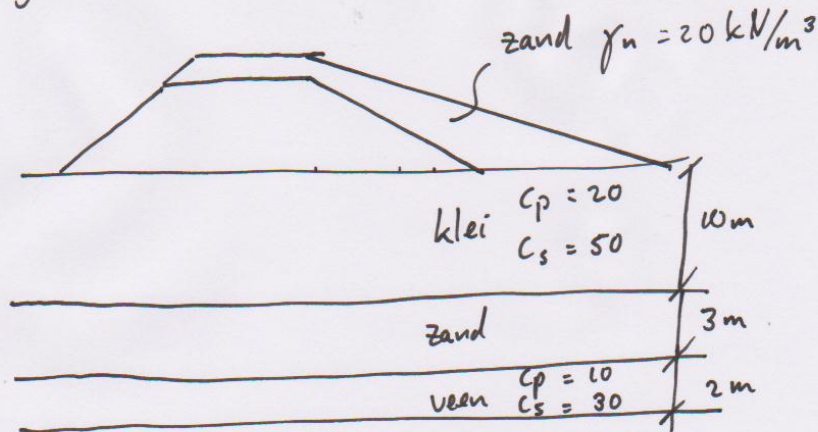 zand γn = 20 kN/m³
klei
Cp = 20
Cs = 50
10 m
zand
3 m
veen
Cp = 10
Cs = 30
2 m